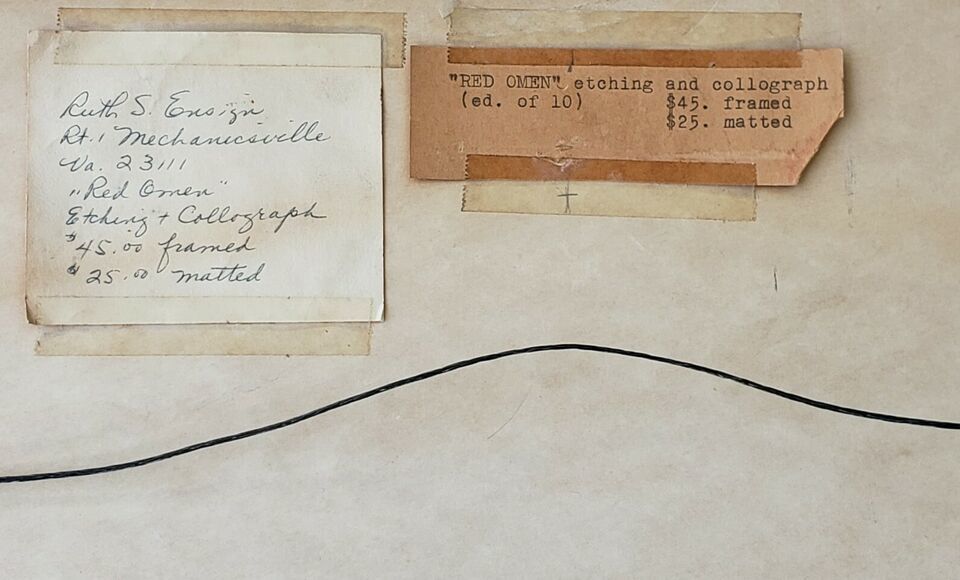 Ruth S. Ensign
Rt. 1 Mechanicsville
Va. 23111
"Red Omen"
Etching + Collograph
$45.00 framed
$25.00 matted
"RED OMEN" etching and collograph
(ed. of 10) $45. framed
$25. matted